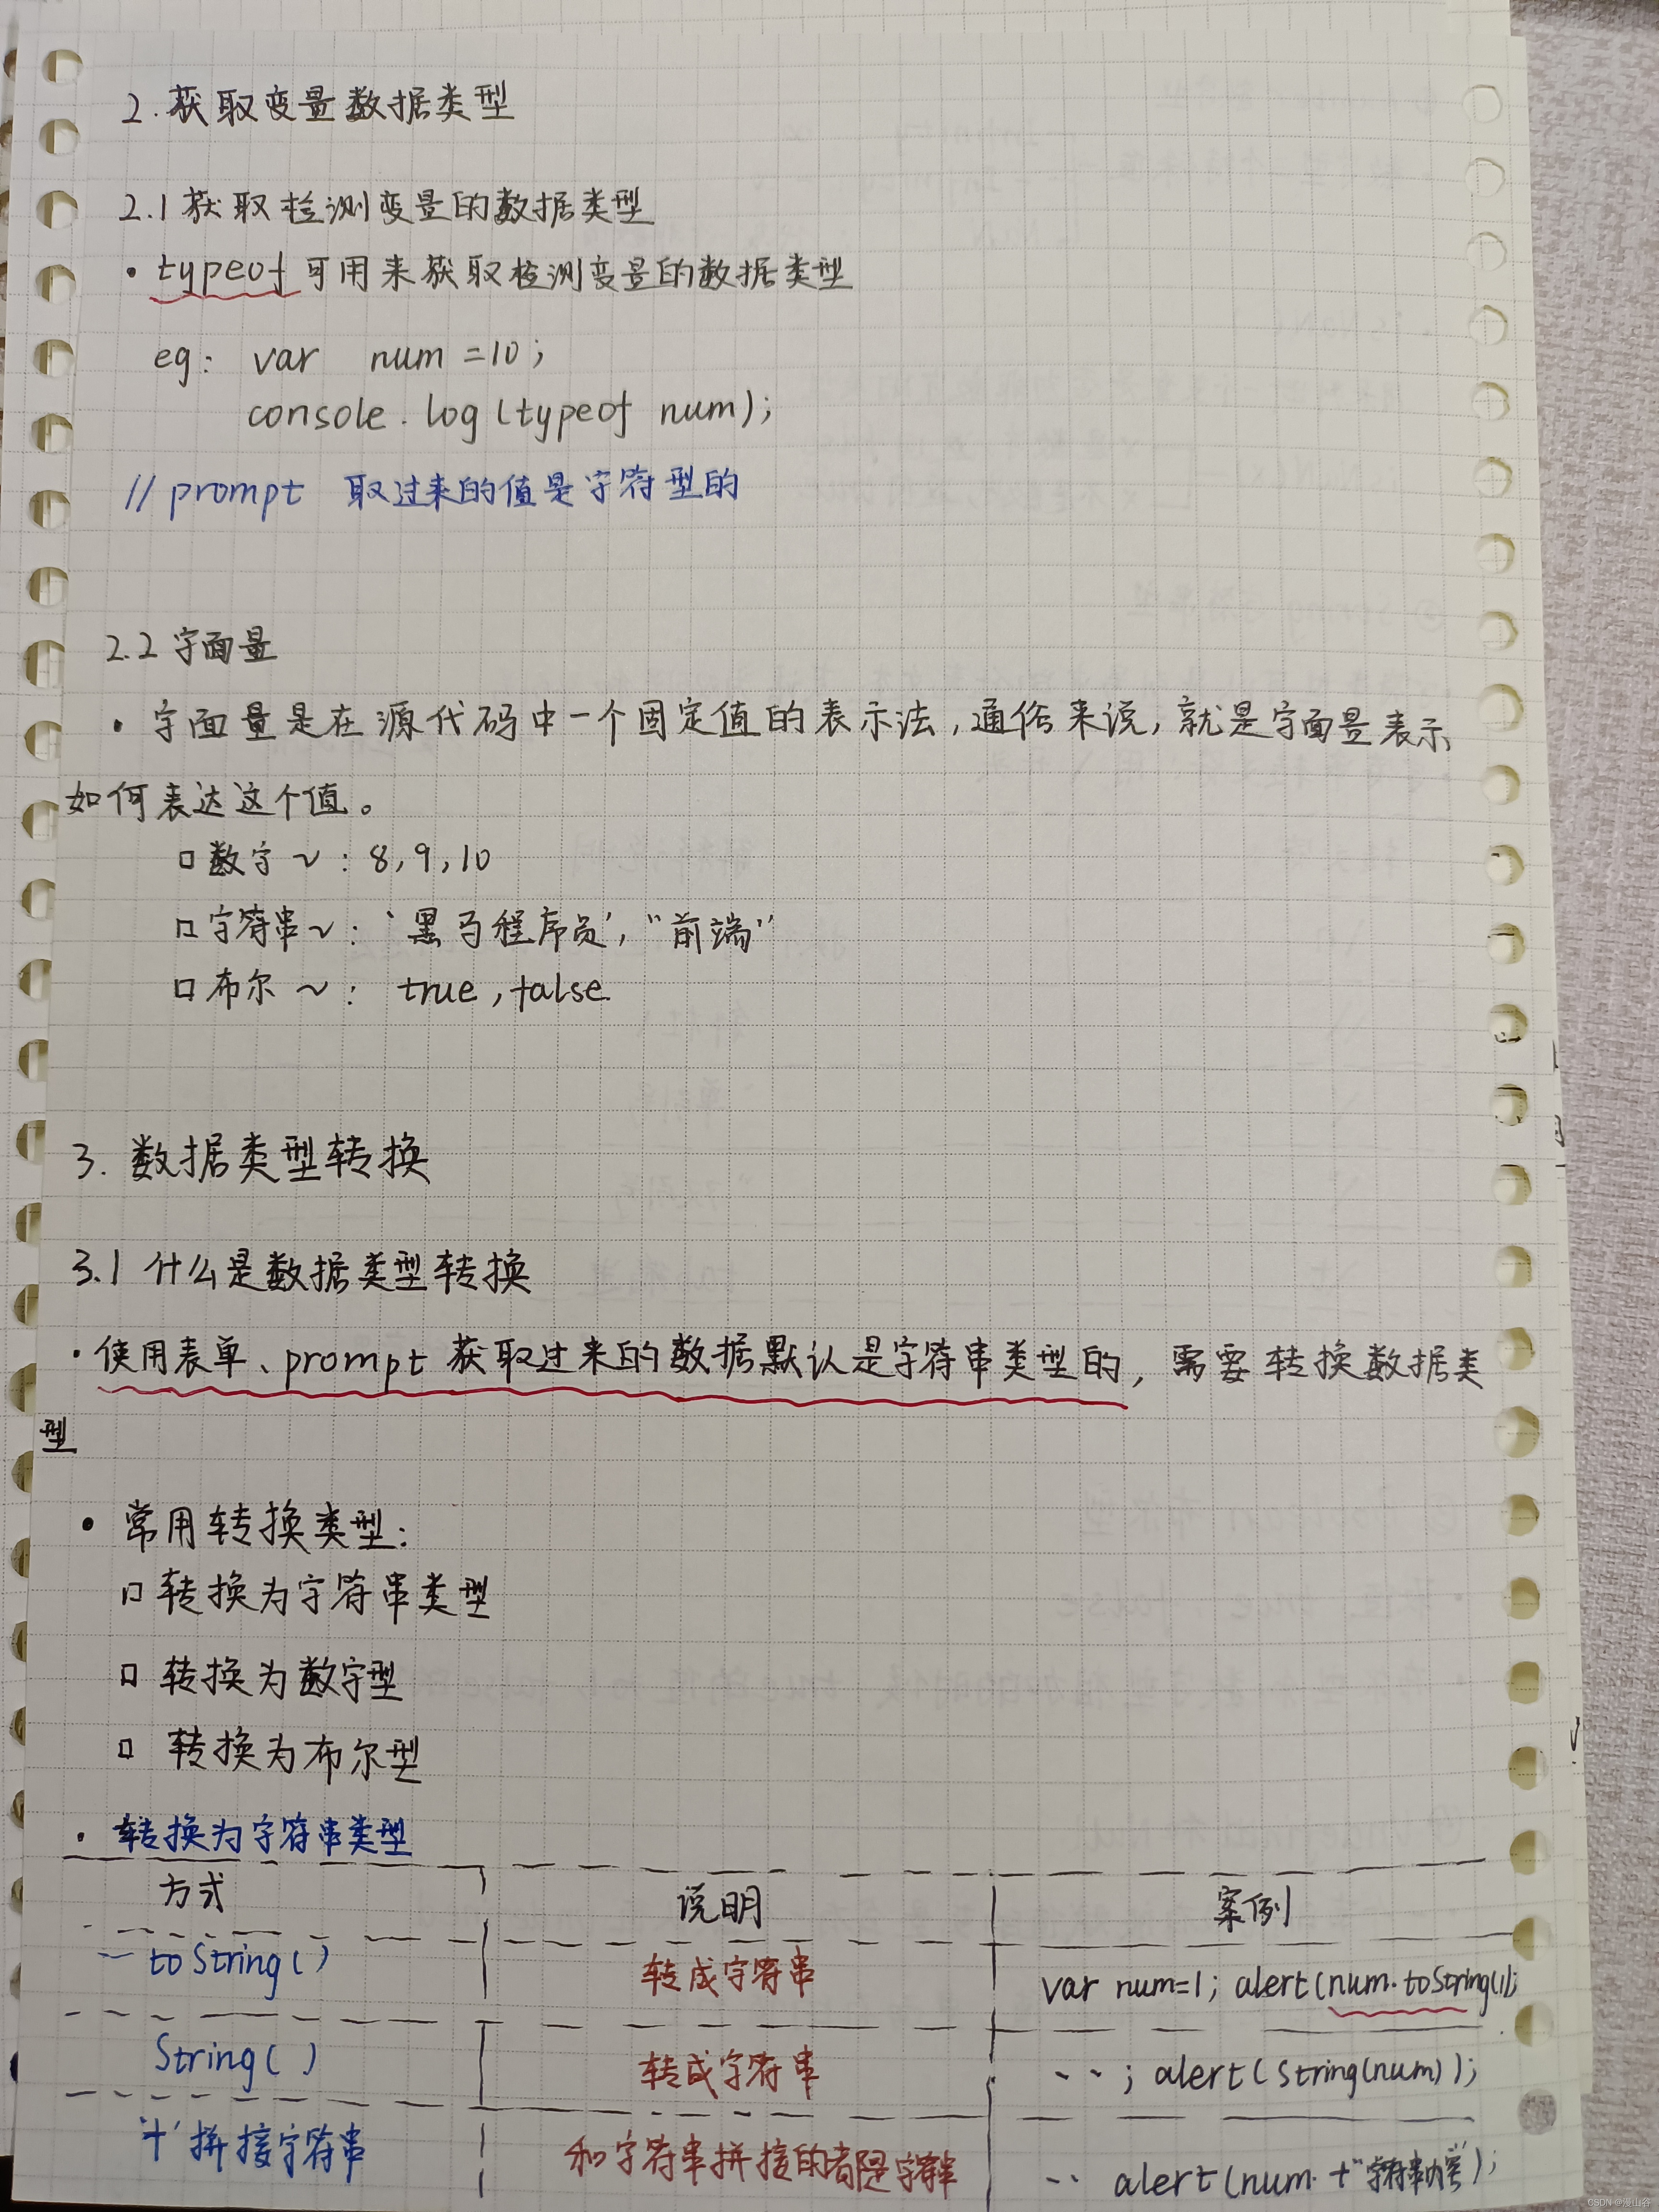 2. 获取变量数据类型
2.1 获取检测变量的数据类型
· typeof 可用来获取检测变量的数据类型
eg: var num =10;
console.log(typeof num);
// prompt 取过来的值是字符型的
2.2 字面量
· 字面量是在源代码中一个固定值的表示法,通俗来说,就是字面量表示
如何表达这个值。
□ 数字 ~ : 8, 9, 10
□ 字符串 ~ : '黑马程序员', "前端"
□ 布尔 ~ : true, false
3. 数据类型转换
3.1 什么是数据类型转换
· 使用表单、prompt 获取过来的数据默认是字符串类型的, 需要转换数据类
型
· 常用转换类型:
□ 转换为字符串类型
□ 转换为数字型
□ 转换为布尔型
· 转换为字符串类型
方式 说明 案例
toString() 转成字符串 var num=1; alert(num.toString());
String() 转成字符串 ··; alert(String(num));
'+' 拼接字符串 和字符串拼接的都是字符串 ·· alert(num. + "字符串
CSDN @漫山谷